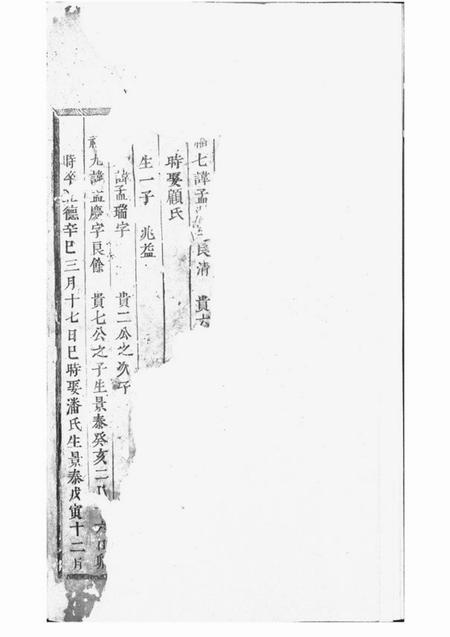 七諱孟 良清 貴六
時娶顧氏
生一子 兆益
諱孟瑞字 貴二公之次子
九諱孟慶字良餘 貴七公之子生景泰癸亥二
時卒 德辛巳三月十七日巳時娶潘氏生景泰戊寅十二月